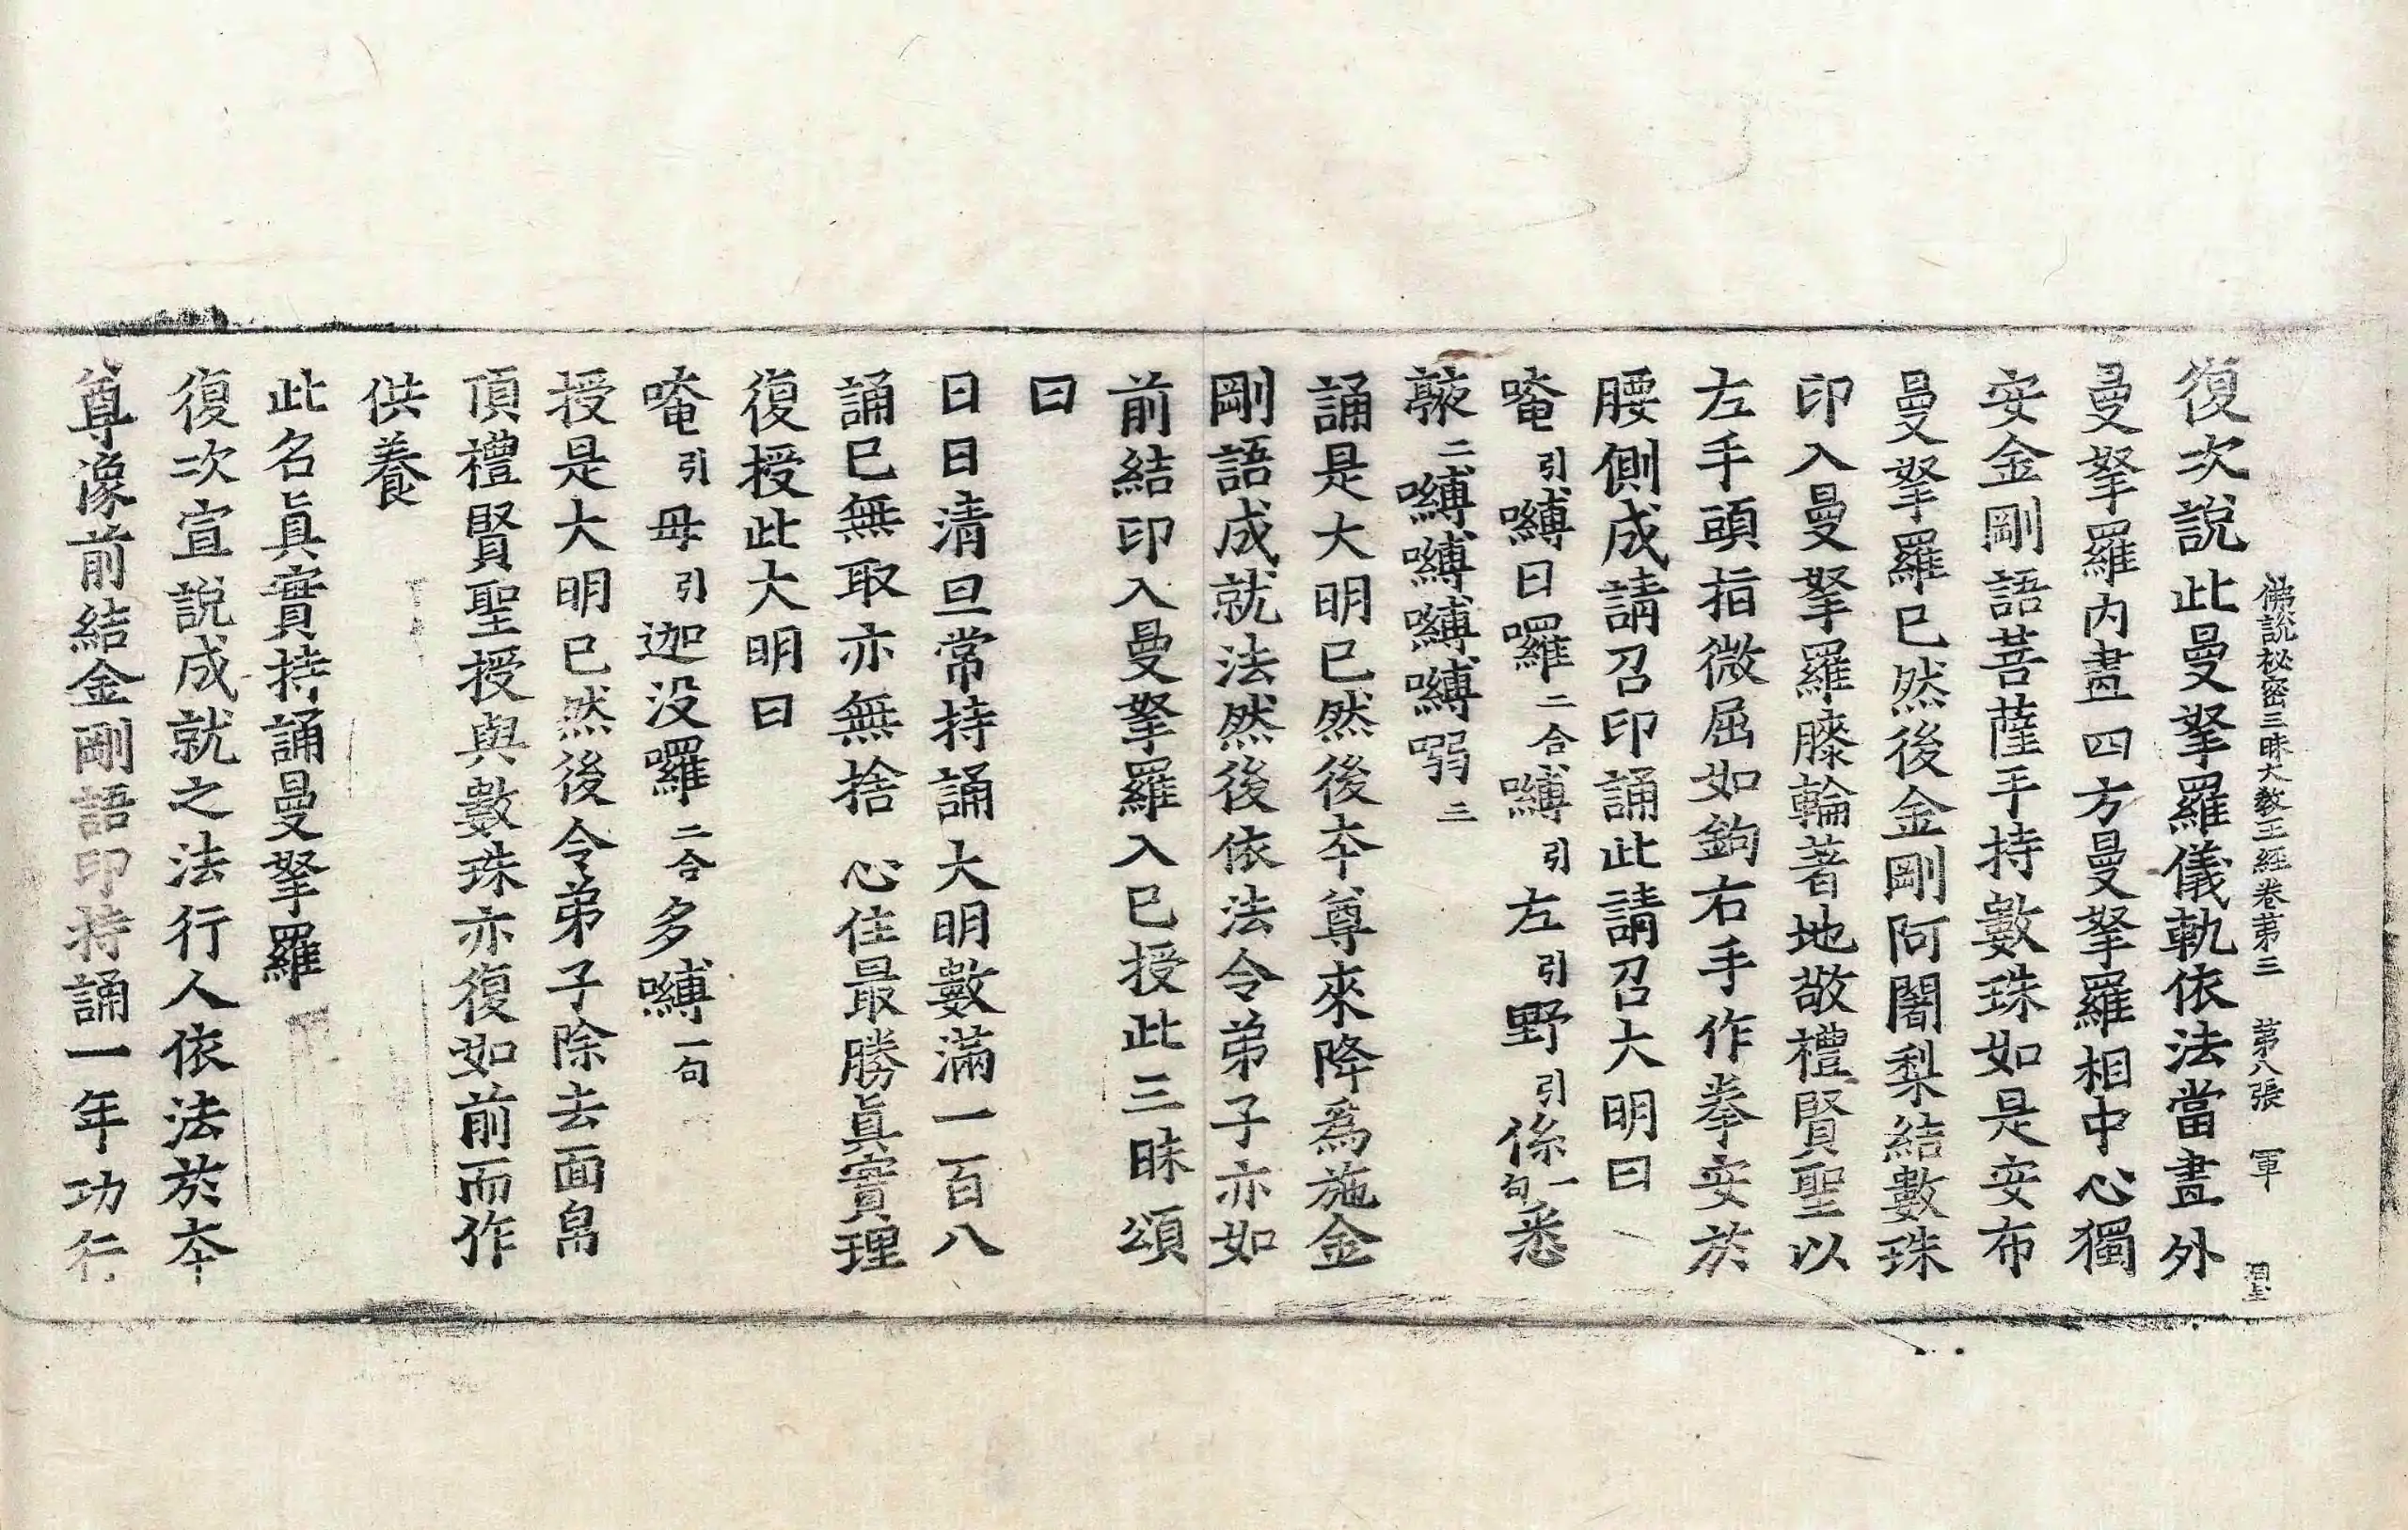 佛說秘密三昧大教王經卷第三　第八張　軍
復次說此曼拏羅儀軌依法當畫外
曼拏羅內畫四方曼拏羅相中心獨
安金剛語菩薩手持數珠如是安布
曼拏羅已然後金剛阿闍梨結數珠
印入曼拏羅膝輪著地敬禮賢聖以
左手頭指微屈如鉤右手作拳安於
腰側成請召印誦此請召大明曰
唵引嚩日囉二合嚩引左引野引係一句悉
蔽二嚩嚩嚩嚩㘈三
誦是大明已然後本尊來降爲施金
剛語成就法然後依法令弟子亦如
前結印入曼拏羅入已授此三昧頌
曰
日日清旦常持誦大明數滿一百八
誦已無取亦無捨　心住最勝眞實理
復授此大明曰
唵引毋引迦没囉二合多嚩一句
授是大明已然後令弟子除去面帛
頂禮賢聖授與數珠亦復如前而作
供養
此名眞實持誦曼拏羅
復次宣說成就之法行人依法於本
尊像前結金剛語印持誦一年功行